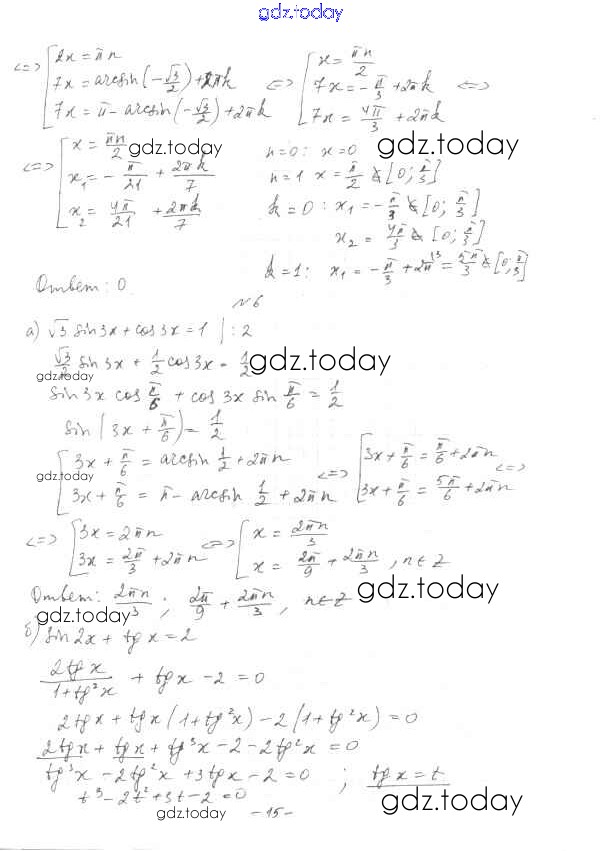 gdz.today
⇔ [ 2x = πn
7x = arcsin(-√3/2) + 2πk
7x = π - arcsin(-√3/2) + 2πk
⇔ [ x = πn/2
7x = -π/3 + 2πk
7x = 4π/3 + 2πk ⇔
⇔ [ x = πn/2
x₁ = -π/21 + 2πk/7
x₂ = 4π/21 + 2πk/7
gdz.today
gdz.today
n=0: x=0
n=1 x = π/2 ∉ [0; π/3]
k=0: x₁ = -π/3 ∉ [0; π/3]
x₂ = 4π/3 ∉ [0; π/3]
k=1: x₁ = -π/3 + 2π = 5π/3 ∉ [0; π/3]
Ответ: 0.
№6
а) √3 sin3x + cos3x = 1 | : 2
√3/2 sin3x + 1/2 cos3x = 1/2
gdz.today
gdz.today
sin3x cos π/6 + cos3x sin π/6 = 1/2
sin(3x + π/6) = 1/2
[ 3x + π/6 = arcsin 1/2 + 2πn
3x + π/6 = π - arcsin 1/2 + 2πn
⇔ [ 3x + π/6 = π/6 + 2πn
3x + π/6 = 5π/6 + 2πn ⇔
gdz.today
⇔ [ 3x = 2πn
3x = 2π/3 + 2πn
⇔ [ x = 2πn/3
x = 2π/9 + 2πn/3, n∈Z
Ответ: 2πn/3; 2π/9 + 2πn/3, n∈Z
gdz.today
gdz.today
б) sin2x + tgx = 2
2tgx/(1+tg²x) + tgx - 2 = 0
2tgx + tgx(1+tg²x) - 2(1+tg²x) = 0
2tgx + tgx + tg³x - 2 - 2tg²x = 0
gdz.today
tg³x - 2tg²x + 3tgx - 2 = 0 ; tgx = t
t³ - 2t² + 3t - 2 = 0
gdz.today
-15-